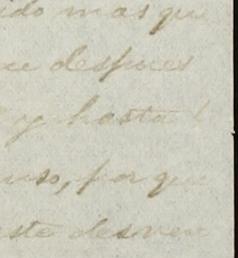 ido mas qu
ce despues
y hasta l
uso, por que
ste desven